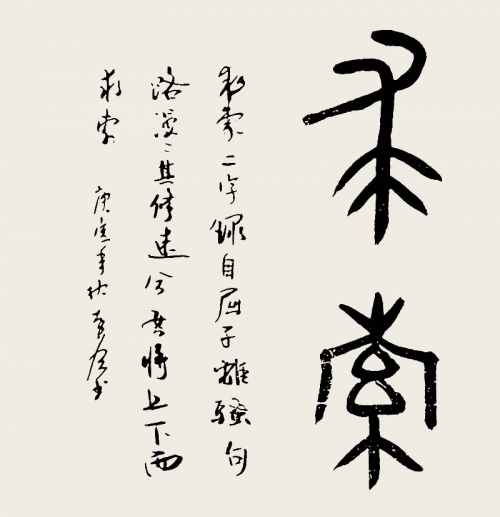 求索
求索二字録自屈子離騷句
路漫々其修遠兮吾將上下而
求索 庚寅年秋书